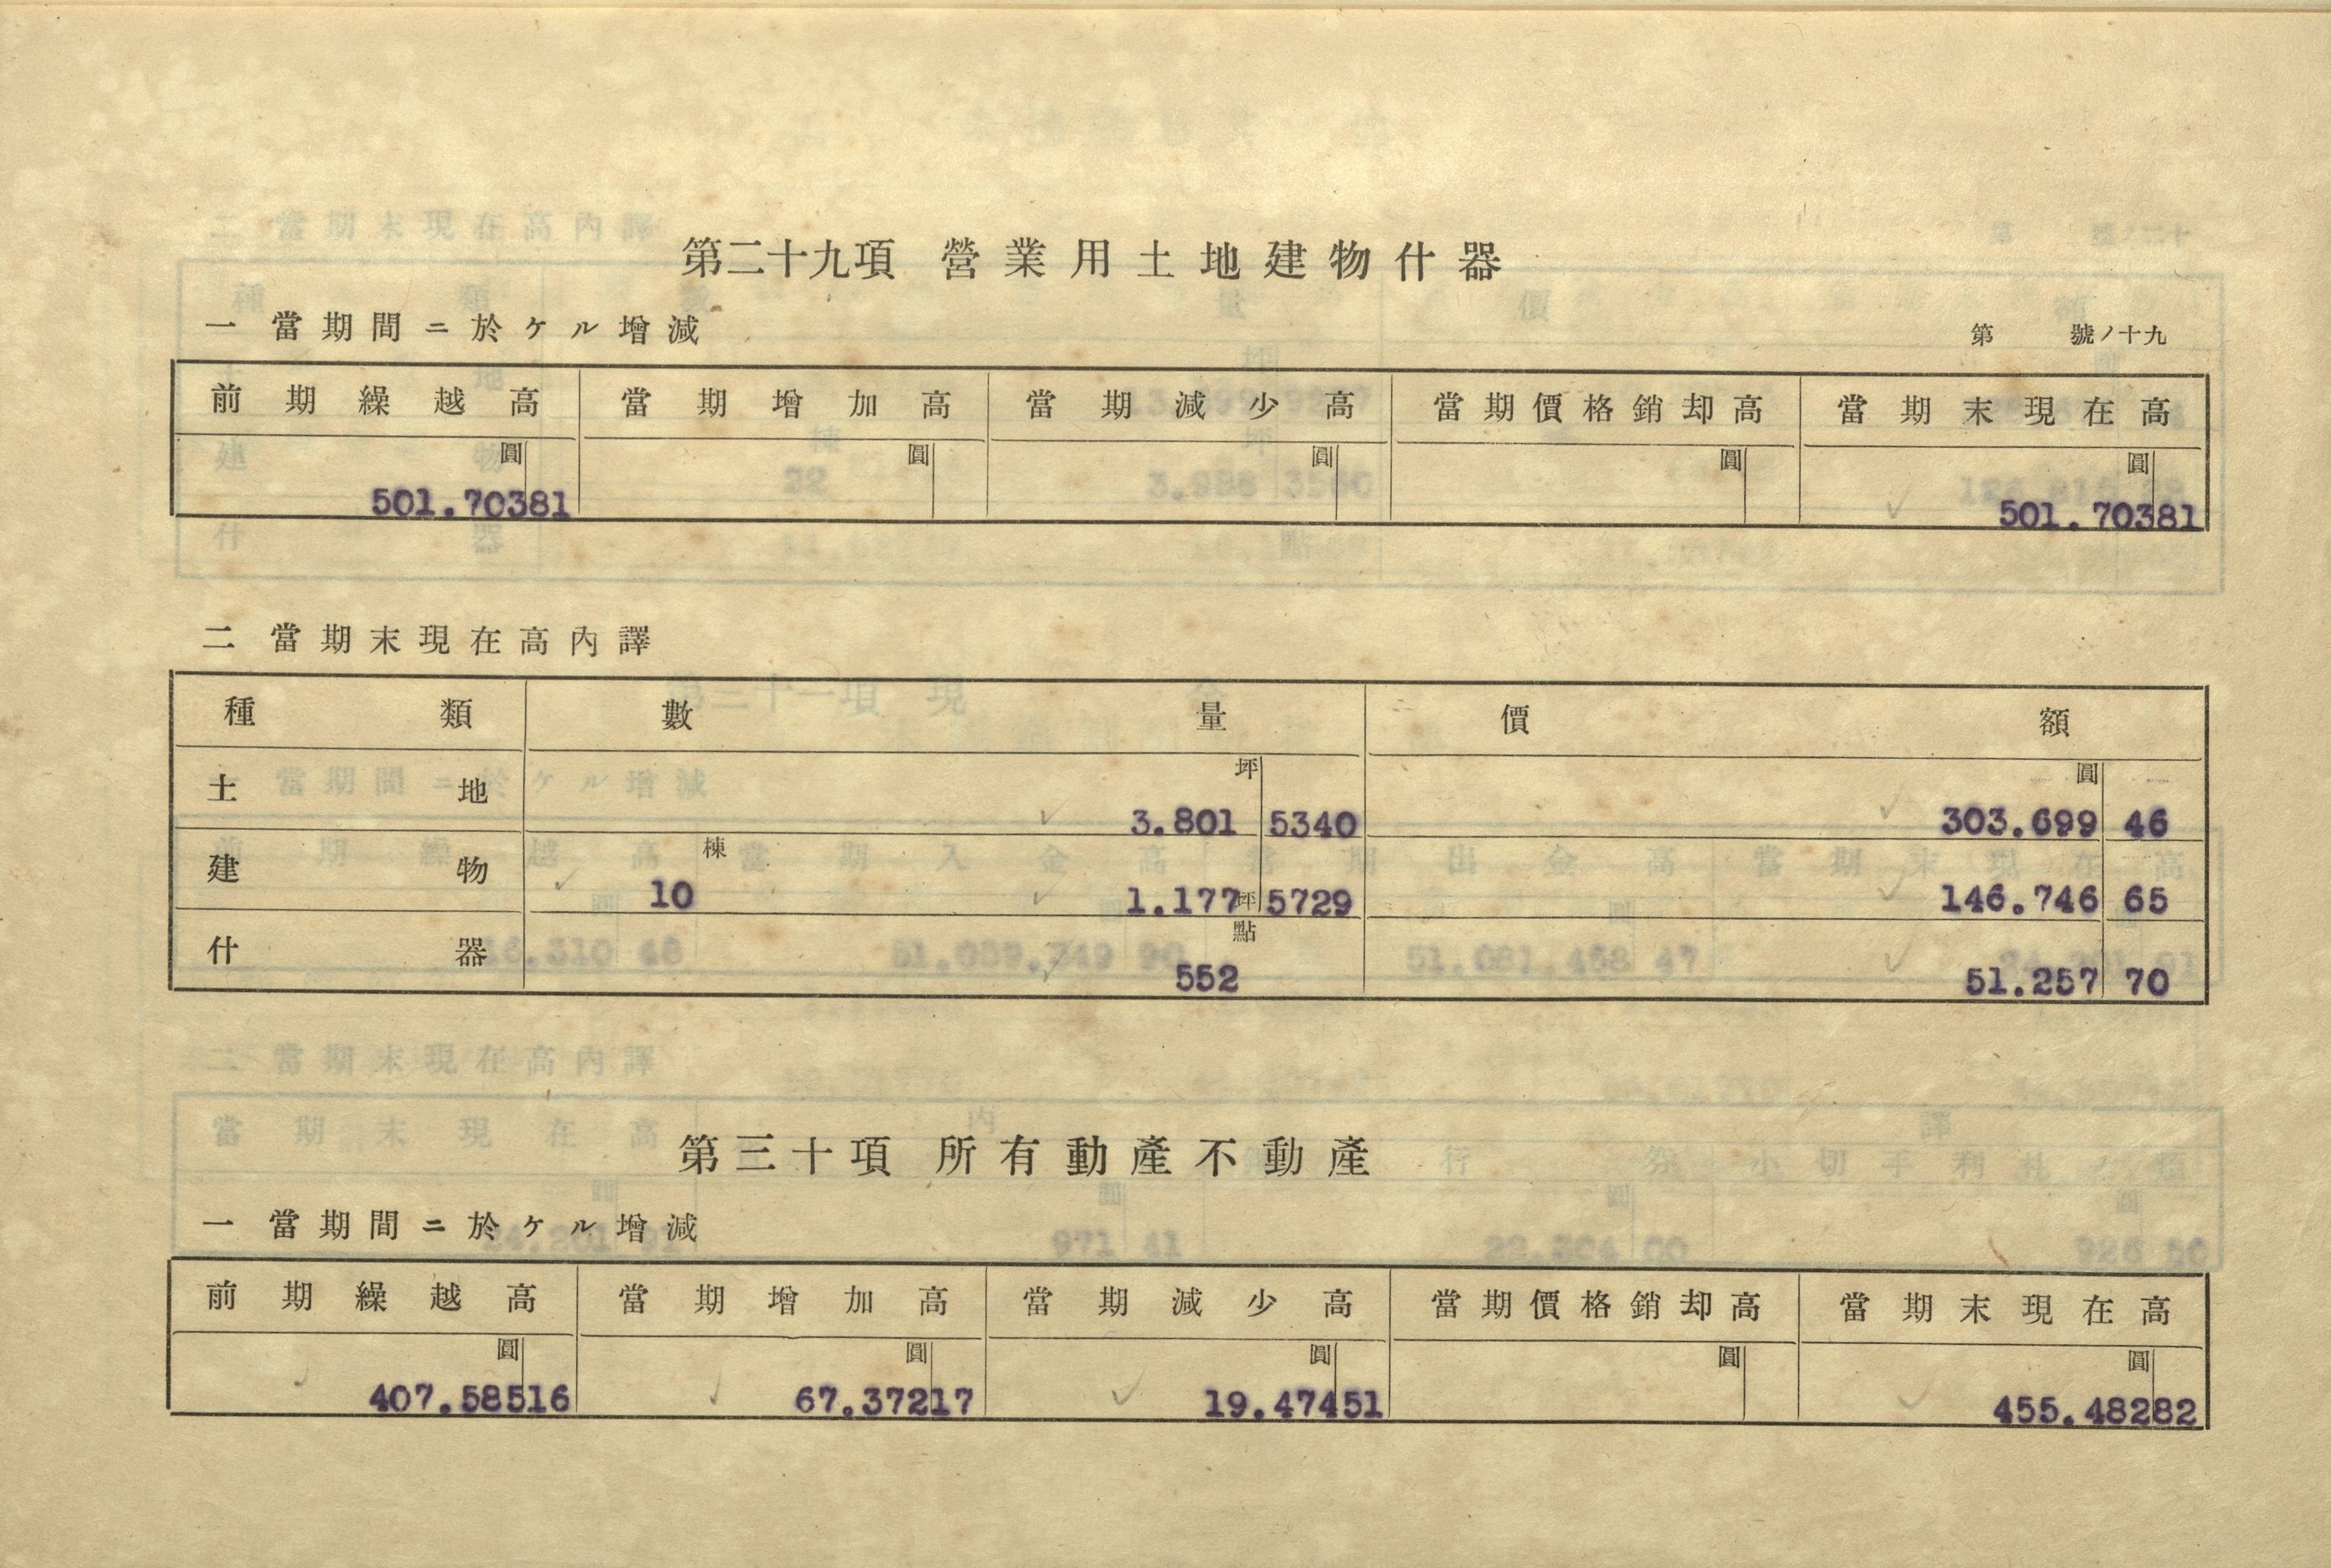 第二十九項 營業用土地建物什器
一 當期間ニ於ケル增減
第 號ノ十九
前期繰越高 當期增加高 當期減少高 當期價格銷却高 當期末現在高
圓 圓 圓 圓 圓
501.70381 501.70381
二 當期末現在高內譯
種類 數量 價額
坪 圓
土地 3.801 5340 303.699 46
棟
建物 10 1.177坪5729 146.746 65
點
什器 552 51.257 70
第三十項 所有動產不動產
一 當期間ニ於ケル增減
前期繰越高 當期增加高 當期減少高 當期價格銷却高 當期末現在高
圓 圓 圓 圓 圓
407.58516 67.37217 19.47451 455.48282